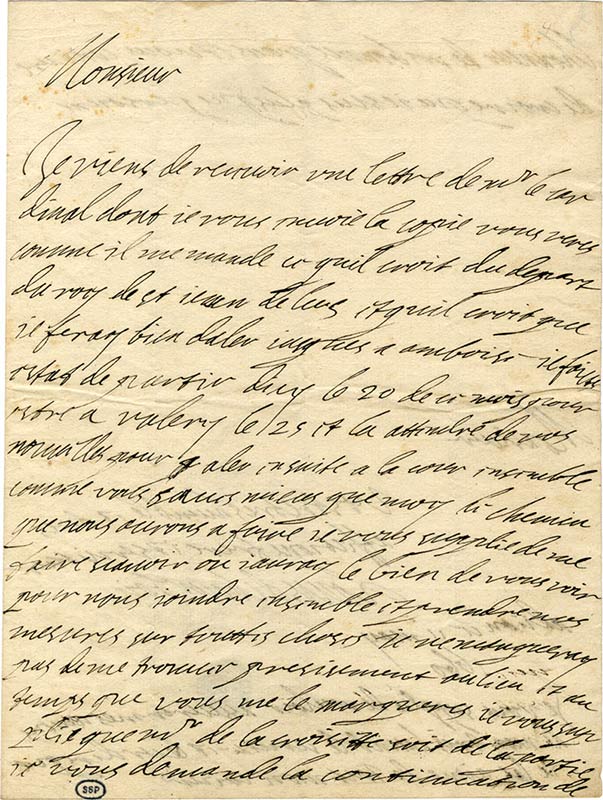 Monsieur
Je viens de recevoir une lettre de mr le car
dinal dont ie vous envoie la copie vous verres
comme il me mande ce quil croit du depart
du roy de st iean de lus et quil croit que
ie feray bien daler iusques a amboise ie fais
estat de partir dicy le 20 de ce mois pour
estre a valery le 25 et la attendre de vos
nouvelles pour aler ensuite a la cour ensemble
comme vous saves mieus que moy le chemin
que nous aurons a faire ie vous supplie de me
faire scavoir ou iauray le bien de vous voir
pour nous joindre ensemble et prendre nos
mesures sur touttes choses ie ne manqueray
pas de me trouver presisement au lieu et au
temps que vous me le marqueres ie vous sup
plie que mr de la croisette soit de la partie
ie vous demande la continuation de
SSP